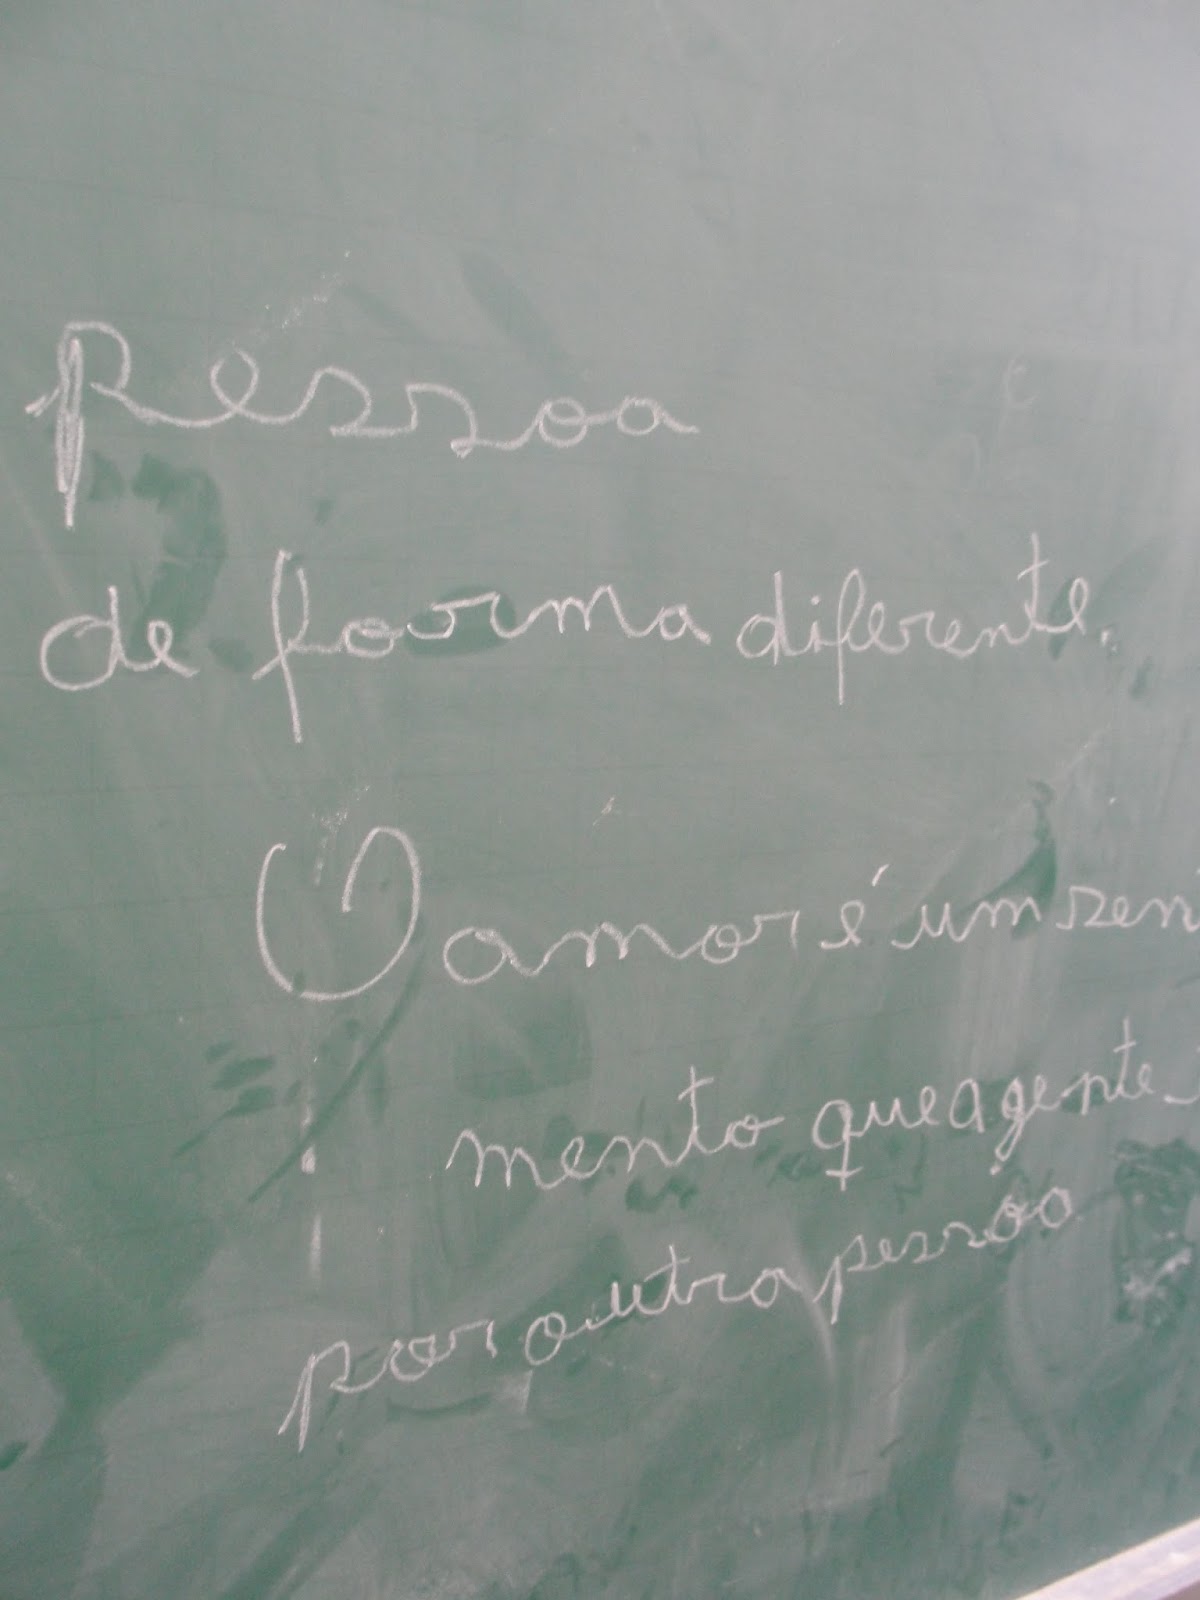 pessoa
de foorma diferente.
O amor é um sen
mento que agente
por outra pessoa